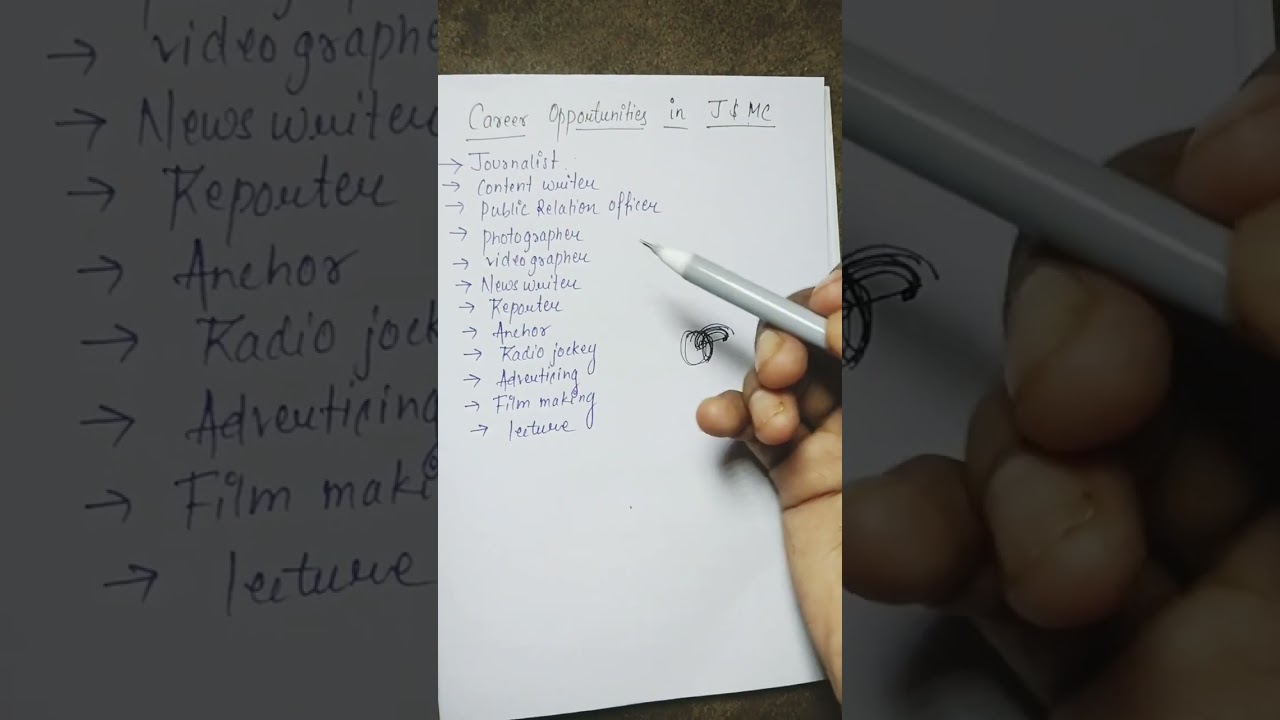 Career Opportunities in J & MC
→ Journalist
→ Content writer
→ Public Relation officer
→ photographer
→ videographer
→ News writer
→ Reporter
→ Anchor
→ Radio jockey
→ Advertising
→ Film making
→ lecture